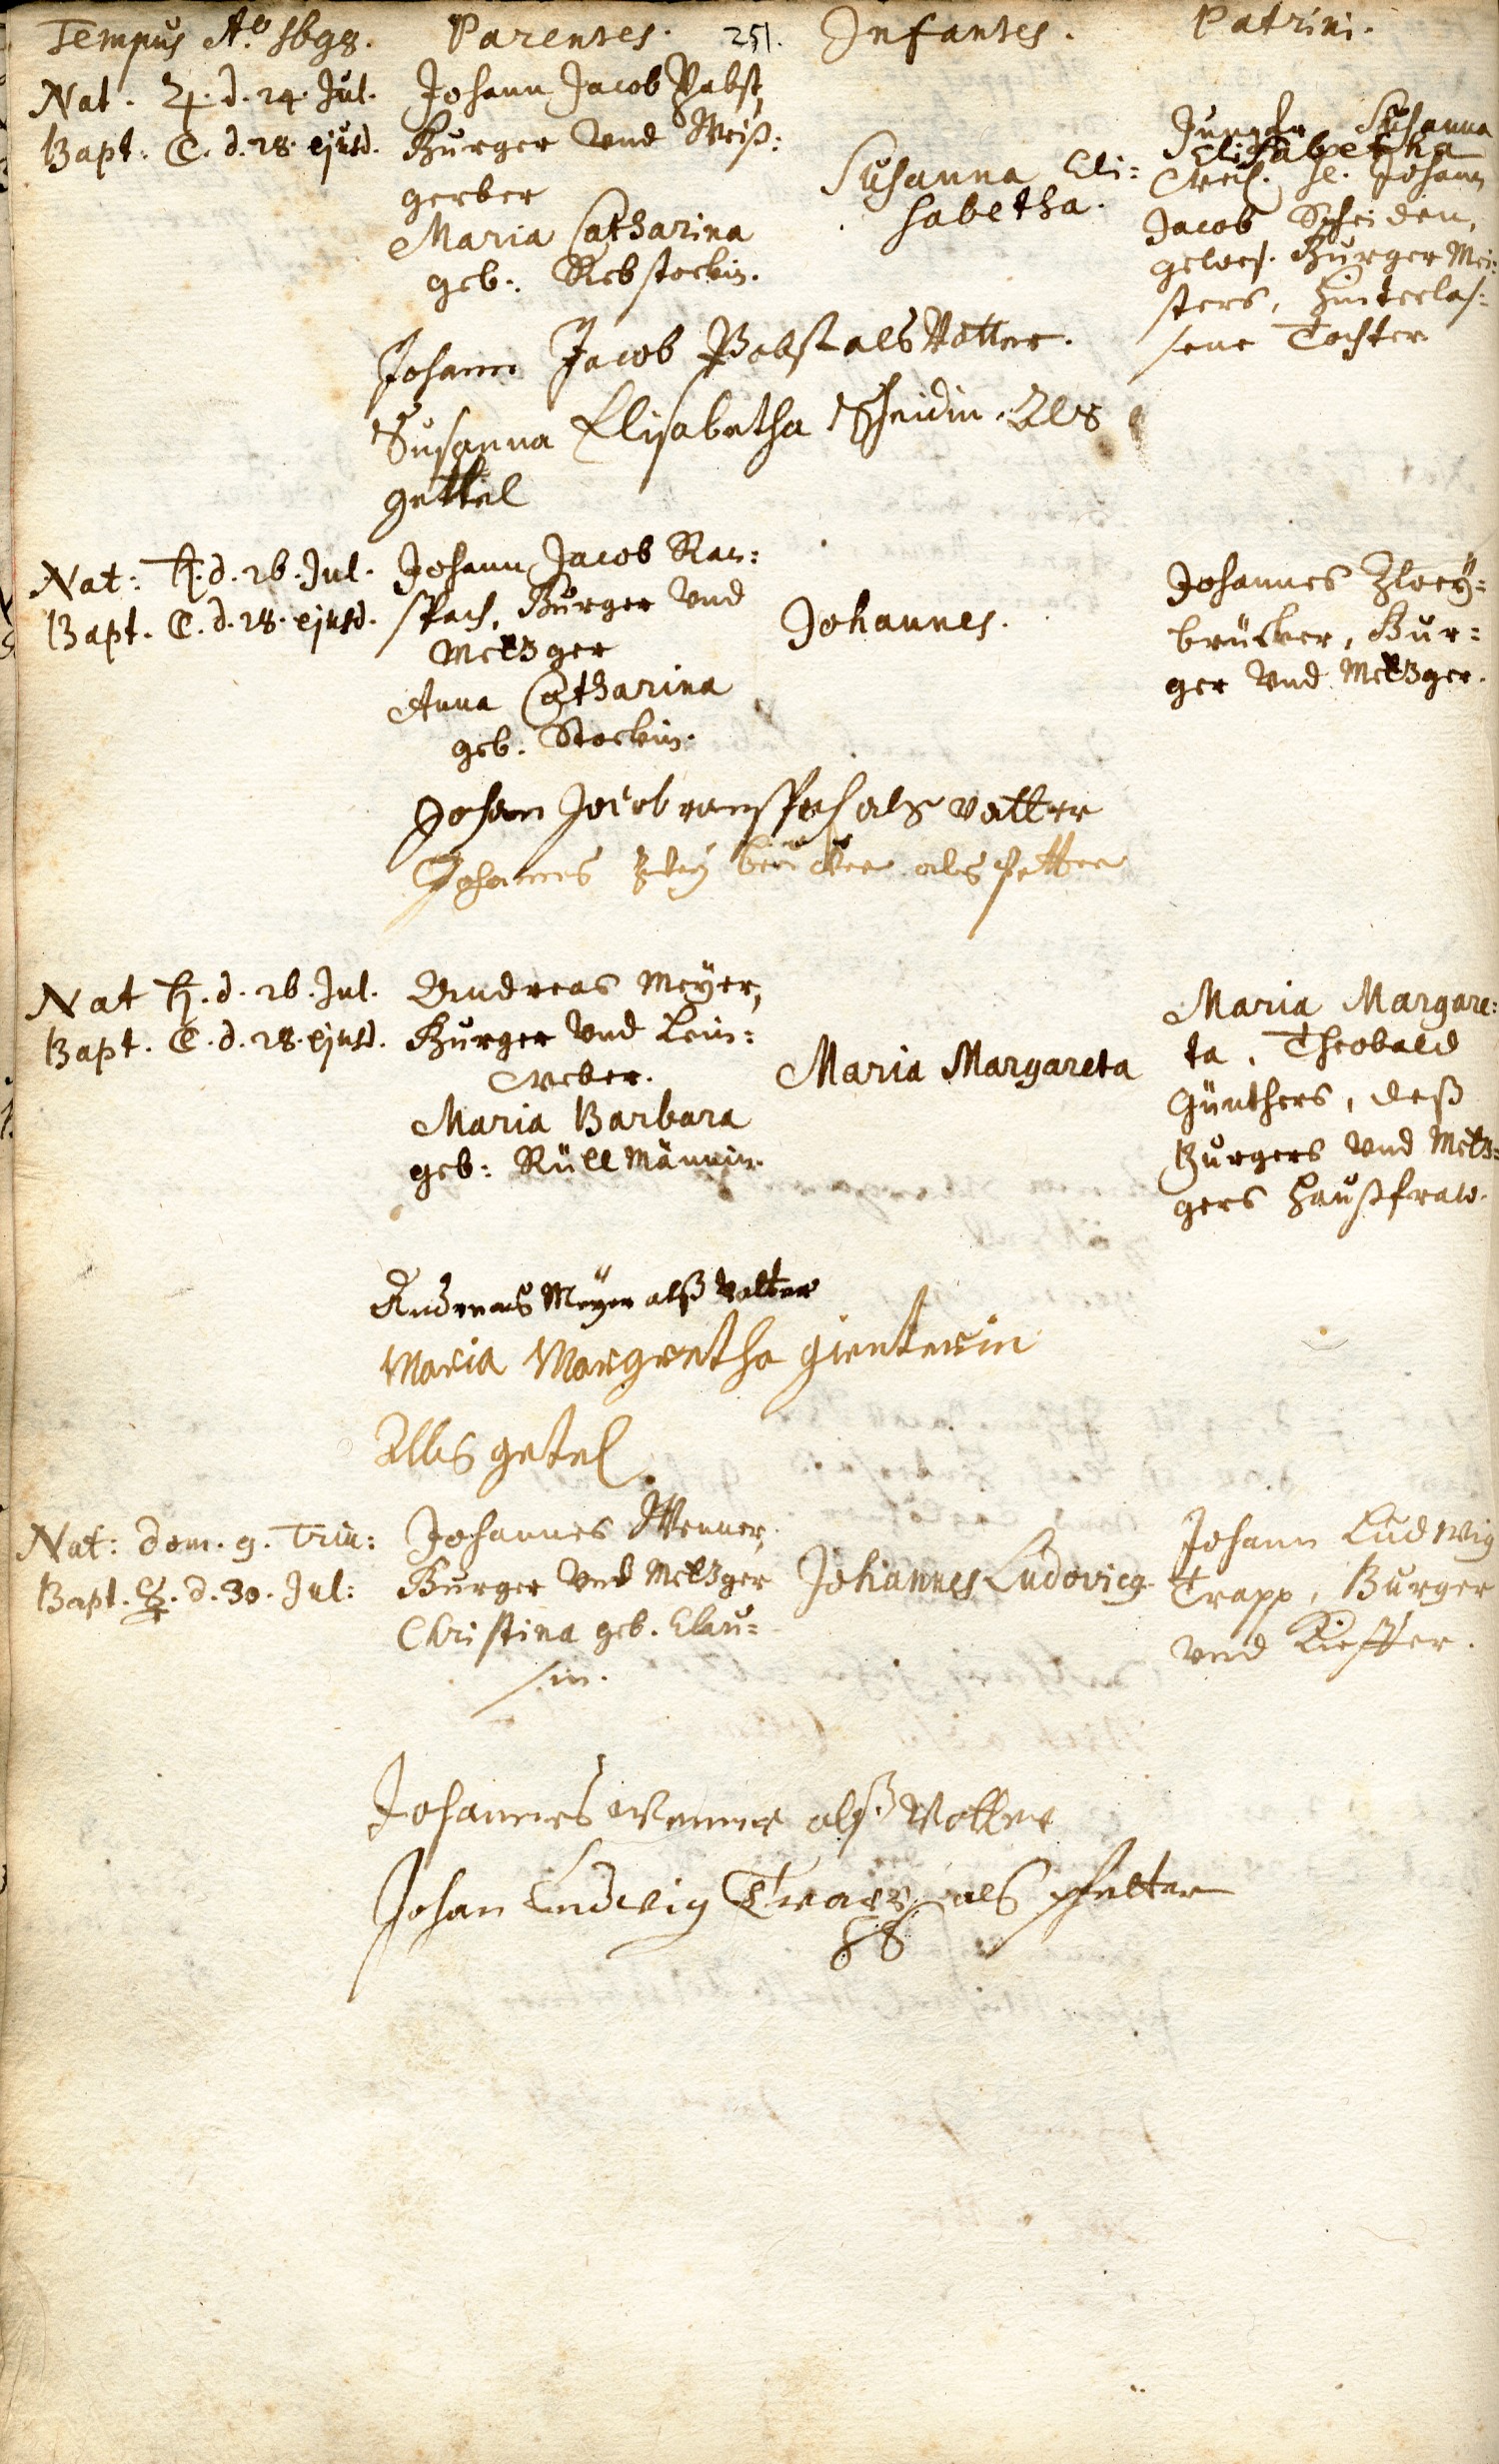 Tempus Aô 1698. Parentes. 251. Infantes. Patrini.
Nat. ♃. d. 24. Jul.
Bapt. ☾. d. 28. ejusd.
Johann Jacob Pabst,
Burger Vnd Weiß=
gerber
Maria Catharina
geb. Rebstockin.
Susanna Eli=
sabetha.
Jungfr Susanna
Elisabetha
weil. H. Johann
Jacob Scheiden,
gewes. Burger Mei=
sters, hinterlas=
sene Tochter
Johann Jacob Pabst als Vatter.
Susanna Elisabetha Scheidin. Als
gettel
Nat: ♄. d. 26. Jul.
Bapt. ☾. d. 28. ejusd.
Johann Jacob Ran=
spach, Burger Vnd
Metzger
Anna Catharina
geb. Stockin.
Johannes.
Johannes Zwey=
brücker, Bur=
ger Vnd Metzger.
Johan Jacob ranspach als vatter
Johannes Zwey brücker als petter
Nat ♄. d. 26. Jul.
Bapt. ☾. d. 28. ejusd.
Andreas Meÿer,
Burger Vnd Lein=
weber.
Maria Barbara
geb: Rüllmännin.
Maria Margareta
Maria Margare=
ta, Theobald
Günthers, deß
Burgers Vnd Metz=
gers Haußfraw.
Andreas Meÿer alß Vatter
Maria Margretha gienterin
Alls getel
Nat: Dom. 9. Trin:
Bapt. ☿. d. 30. Jul:
Johannes Wenner,
Burger Vnd Metzger
Christina geb. Clau=
sin.
Johannes Ludovicg.
Johann Ludwig
Trapp, Burger
Vnd Kieffer.
Johannes Wenner alß Vatter
Johan Ludwig Trapp als pfetter